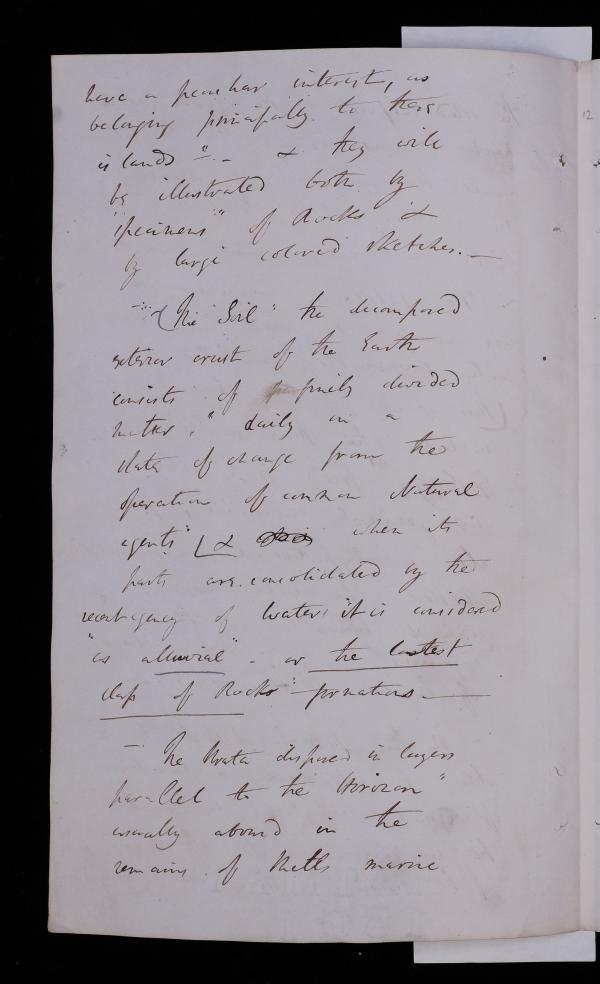 have a peculiar interest, as
belonging principally to these
islands" - & they will
be illustrated both by
"specimens" of Rocks &
by large colored sketches. —
The "Soil" the decomposed
exterior crust of the Earth
consists of finely divided
matter, " daily in a
state of change from the
operation of common Natural
agents" & when its
parts are consolidated by the
recent agency of Water "it is considered
"as alluvial" - or the lastest
class of Rocks" - formations. —
— The Strata disposed in layers
parallel to the Horizon"
usually abound in the
remains of shells marine
12